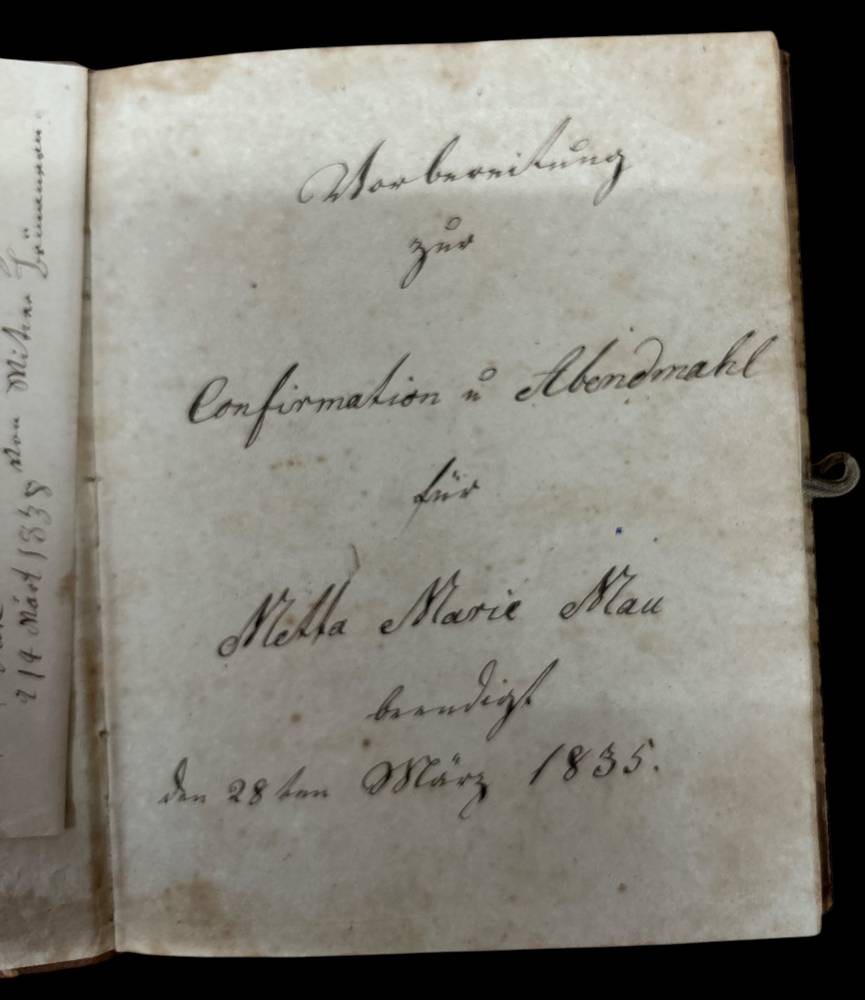 214 März 1838 von Mitner
Vorbereitung
zur
Confirmation u Abendmahl
für
Metta Marie Mau
beendigt
den 28ten März 1835.